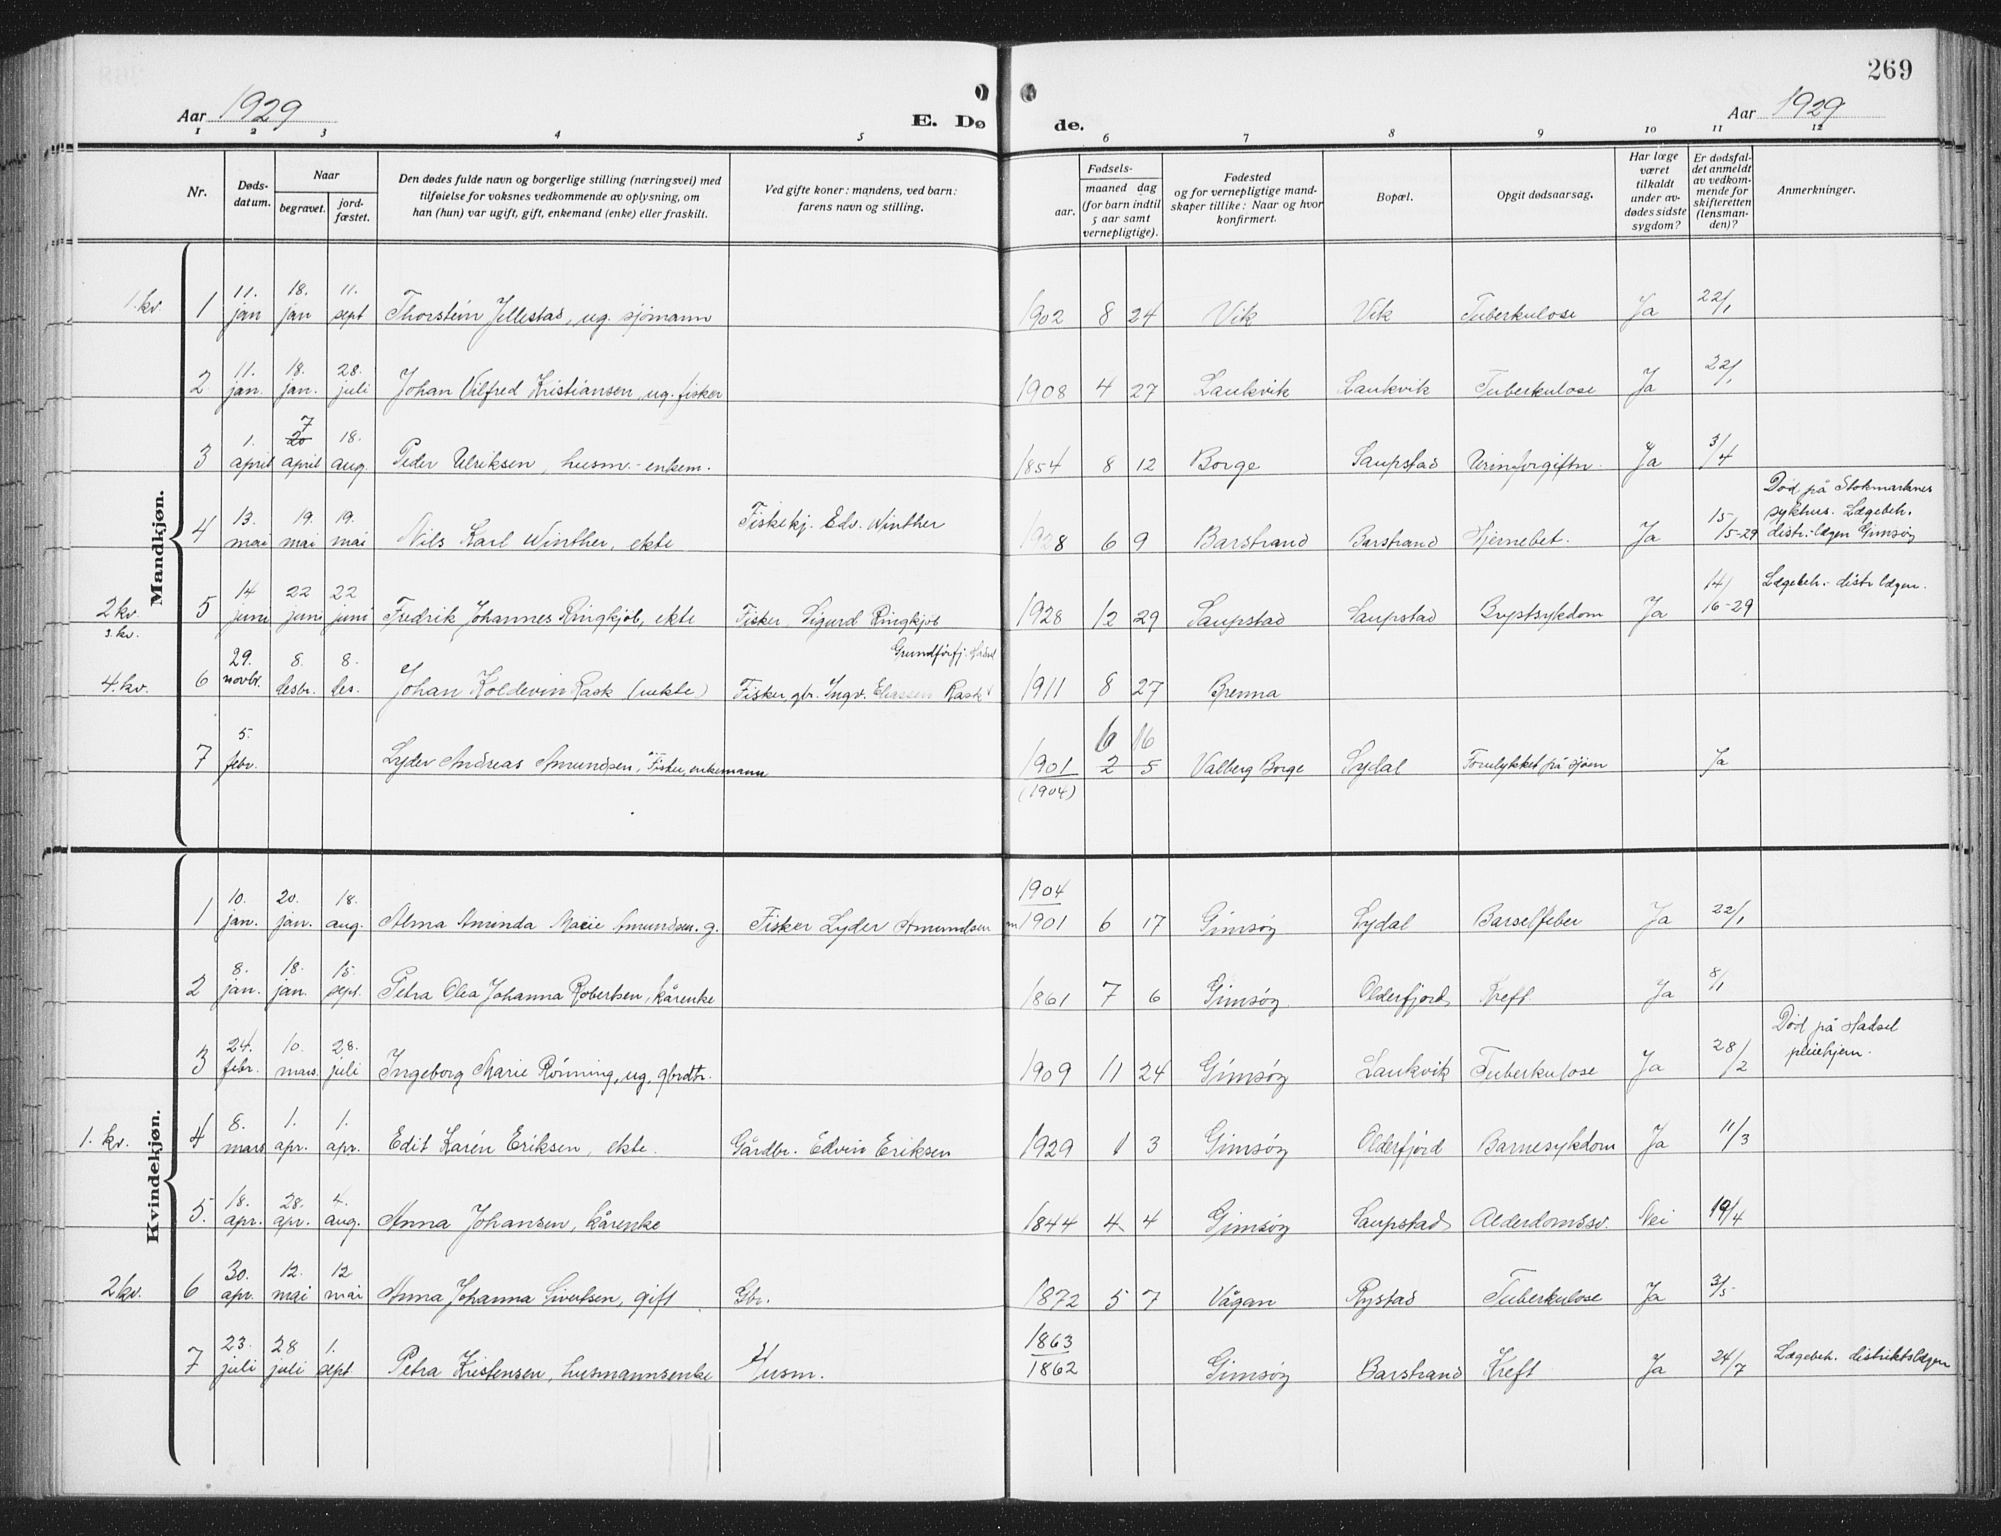 269
Aar 1929
E. Døde.
Aar 1929
1 2 3 4 5 6 7 8 9 10 11 12
Nr.
Døds-datum.
Naar
begravet.
jord-fæstet.
Den dødes fulde navn og borgerlige stilling (næringsvei) med
tilføielse for voksnes vedkommende av oplysning, om
han (hun) var ugift, gift, enkemand (enke) eller fraskilt.
Ved gifte koner: mandens, ved barn:
farens navn og stilling.
Fødsels-
aar.
maaned dag
(for barn indtil
5 aar samt
vernepligtige).
Fødested
og for vernepligtige mand-
skaper tillike: Naar og hvor
konfirmert.
Bopæl.
Opgit dødsaarsag.
Har læge
været
tilkaldt
under av-
dødes sidste
sygdom?
Er dødsfal-
det anmeldt
av vedkom-
mende for
skifteretten
(lensman-
den)?
Anmerkninger.
Mandkjøn.
1. kv. 1 11. jan 18. jan 11. sept Thorstein Jellestad, ug. sjömann 1902 8 24 Vik Vik Tuberkulose Ja 22/1
2 11. jan. 18. jan. 28. juli Johan Vilfred Kristiansen, ug. fisker 1908 4 27 Laukvik Laukvik Tuberkulose Ja 22/1
3 1. april 20 7 april 18. aug. Peder Ulriksen, husm.-enkem. 1854 8 12 Borge Saupstad Urinforgiftn. Ja 3/4
4 13. mai 19. mai 19. mai Nils Karl Winther, ekte Fiskekj. Edv. Winther 1928 6 9 Barstrand Barstrand Hjernebet. Ja 15/5-29 Död på Stokmarknes
sykhus. Lægebeh.
distr.-lægen Gimsöy
2 kv. 5 14 juni 22 juni 22 juni Fredrik Johannes Ringkjöb, ekte Fisker Sigurd Ringkjöb 1928 12 29 Saupstad Saupstad Brystsykdom Ja 14/16-29 Lægebeh. distr lægen.
3. kv.
4. kv. 6 29. novbr. 8. desbr. 8. des. Johan Koldevin Rask (uekte) Fisker, gbr. Ingv. Eliassen Rask 1911 8 27 Brenna
7 5. febr. Lyder Andreas Amundsen, Fisker, enkemann 1901 (1904) 6 16 2 5 Valberg Borge Lydal Forulykket på sjöen Ja
Kvindekjøn.
1 10. jan. 20. jan. 18. aug. Alma Aminda Marie Amundsen. g. Fisker Lyder Amundsen 1904 1901 6 17 Gimsöy Lydal Barselfeber Ja 22/1
2 8. jan. 18. jan. 15. sept. Petra Olea Johanna Robertsen, kårenke 1861 7 6 Gimsöy Olderfjord Kreft Ja 8/1
3 24. febr. 10. mars. 28. juli Ingeborg Marie Rönning, ug, gbrdtr. 1909 11 24 Gimsöy Laukvik Tuberkulose Ja 28/2 Död på Hadsel
pleiehjem.
1. kv. 4 8. mars 1. apr. 1. apr. Edit Karén Eriksen, ekte. Gårdbr. Edvin Eriksen 1929 1 3 Gimsöy Olderfjord Barnesykdom Ja 11/3
5. 18. apr. 28. apr. 4. aug. Anna Johansen, kårenke 1844 4 4 Gimsöy Saupstad Alderdomssv. Nei 19/4
2 kv. 6 30. apr. 12. mai 12 mai Anna Johanna Sivertsen, gift Gbr. 1872 5 7 Vågan Rystad Tuberkulose Ja 3/5
7 23. juli 28 juli 1. sept. Petra Kristensen, husmannsenke Husm. 1863 1862 Gimsöy Barstrand Kreft Ja 24/7 Lægebeh. distriktslægen